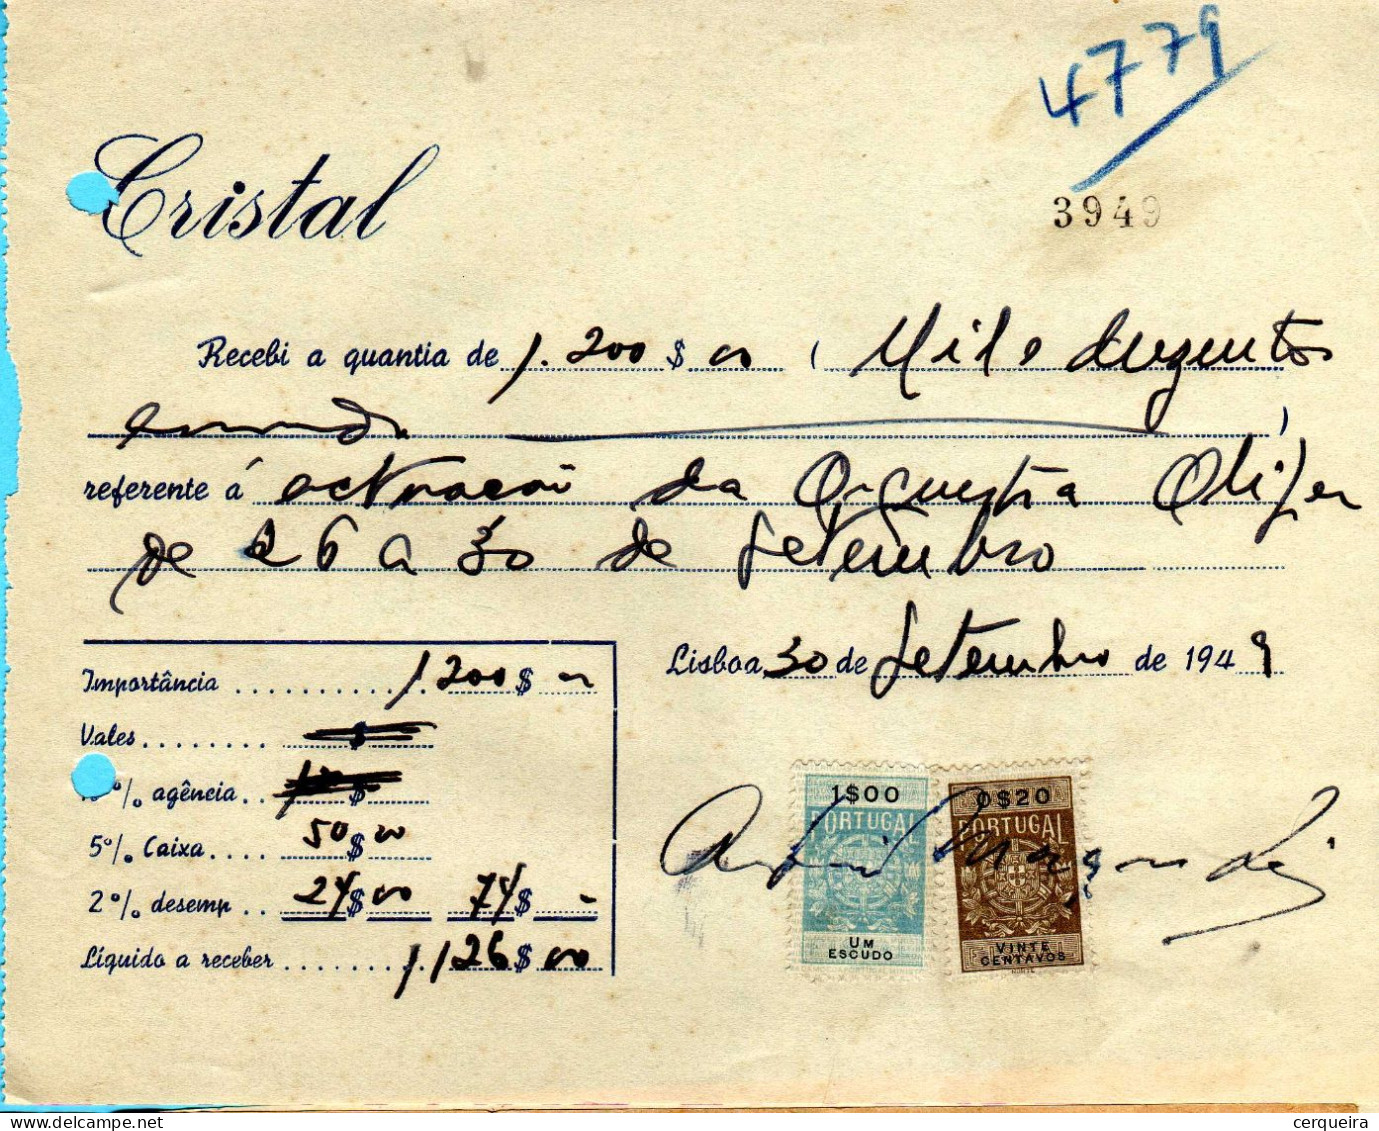 4779
Cristal
3949
Recebi a quantia de 1.200 $ 00 ( Mil e duzentos
escudos )
referente á actuação da Orquestra Oliver
de 26 a 30 de Setembro
Lisboa 30 de Setembro de 1949
Importância .......... 1200 $ 00
Vales ........ $
% agência .. $
5% Caixa .... 50 $ 00
2% desemp .. 24 $ 00 74 $ -
Líquido a receber ........ 1,126 $ 00
1$00
PORTUGAL
UM
ESCUDO
0$20
PORTUGAL
VINTE
CENTAVOS
cerqueira